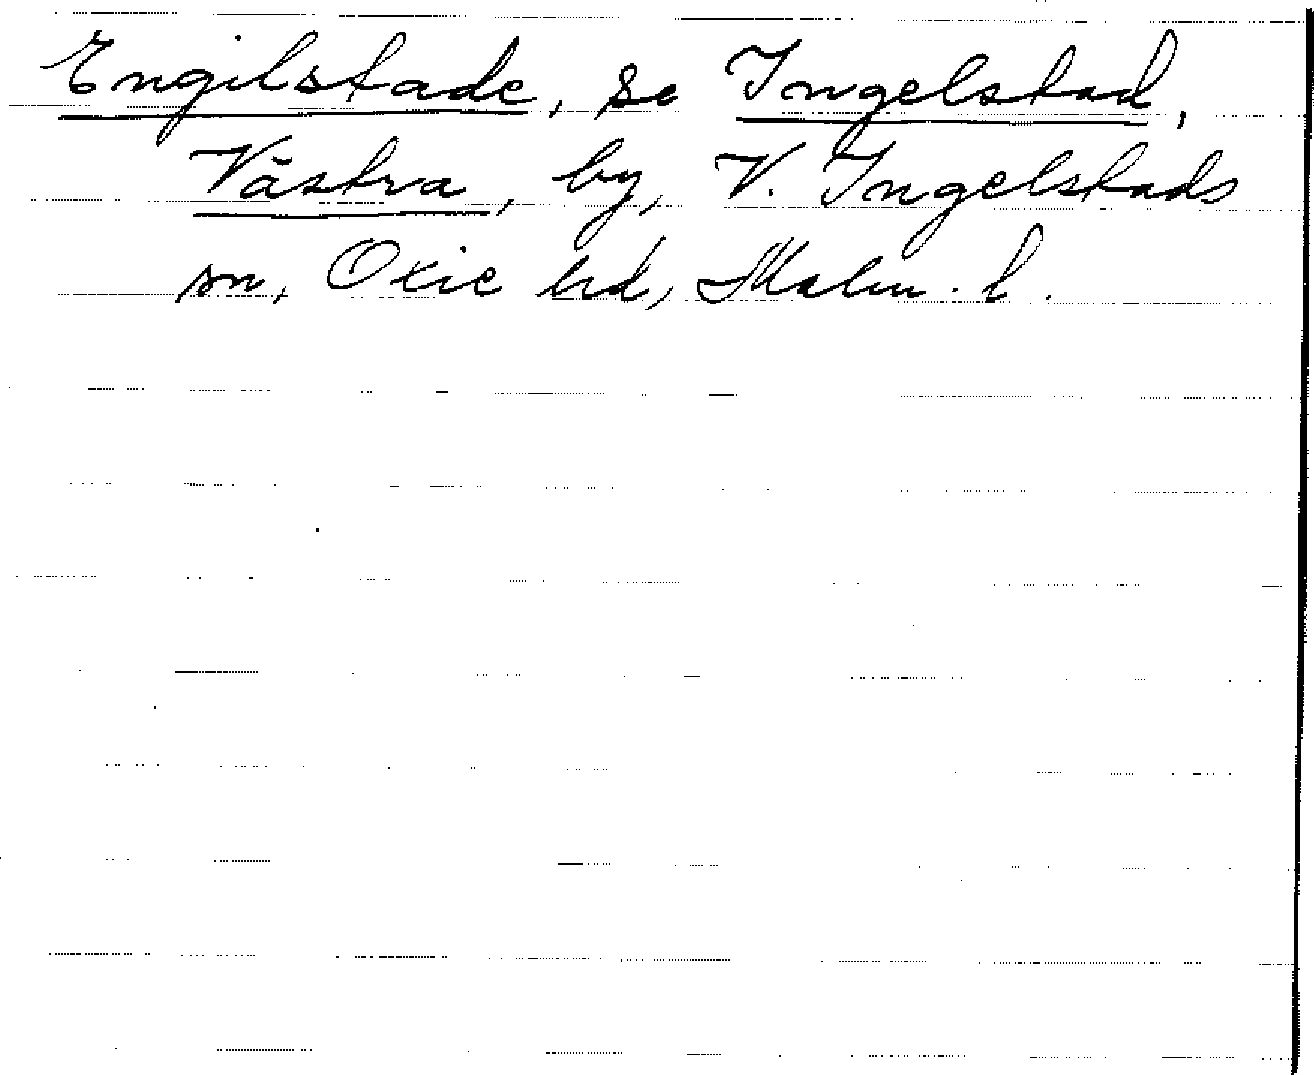 Engilstade, se Ingelstad,
Västra, by, V. Ingelstads
sn, Oxie hd, Malm. l.